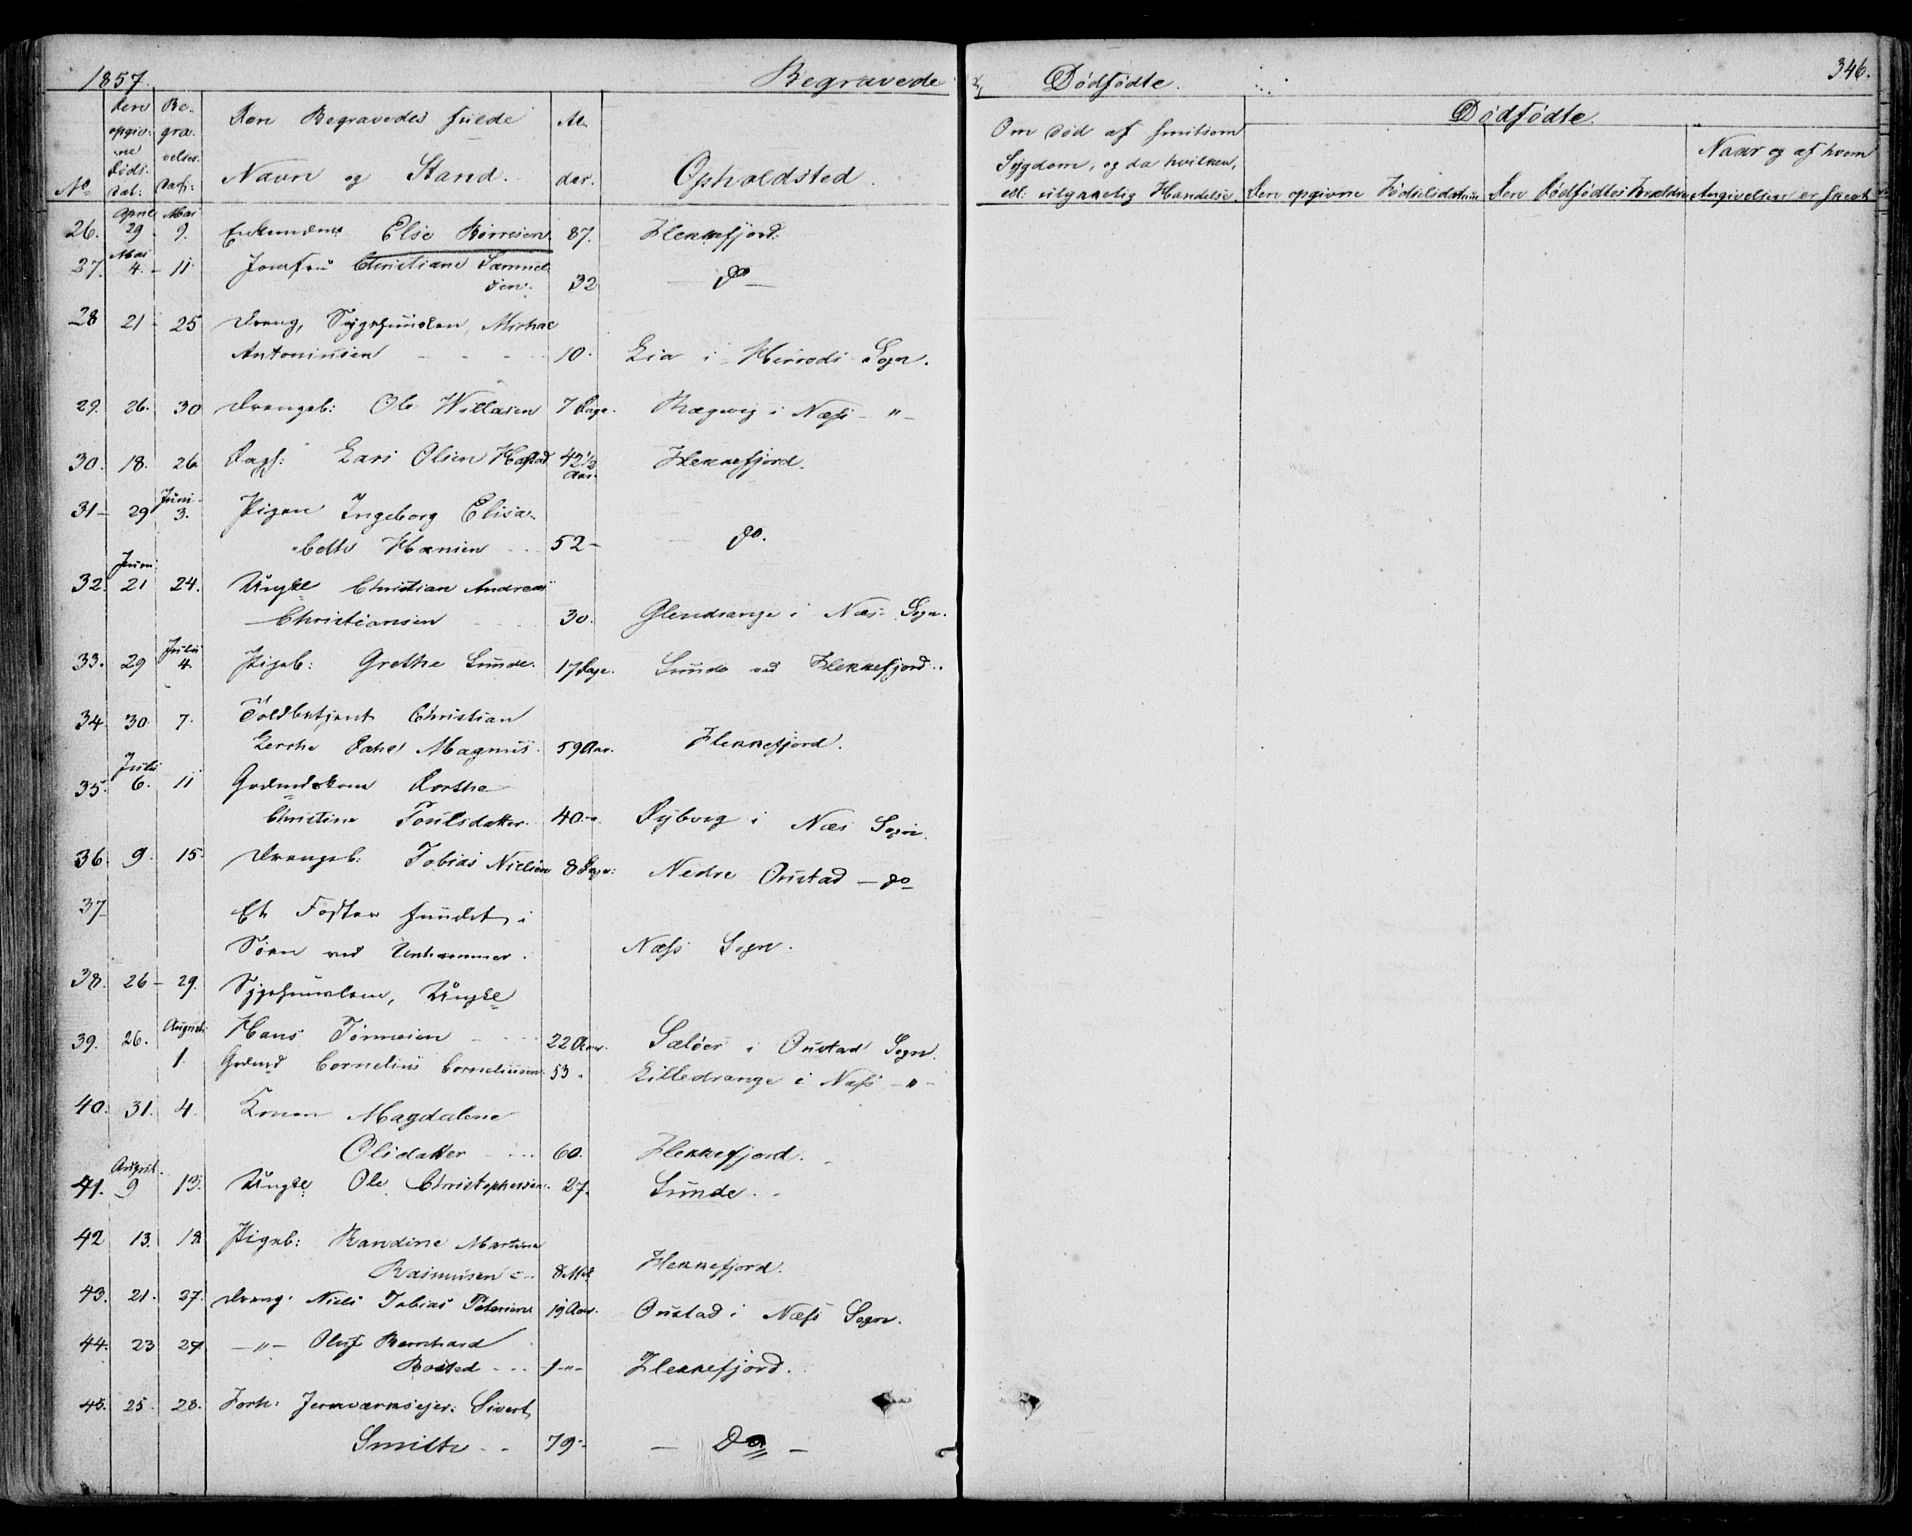 1857. Begravede
Den opgivne Døds Dat: Begravelses Dat: Den Begravedes fulde Al-
No Navn og Stand. der. Opholdsted.
26. April 29 Mai 9. Enkemdme Else Børresen 87. Flekkefjord.
27. Mai 4. - 11. Jomfru Christiane Samuel
sen. 32 — do —
28 21 - 25 Dreng, Michae
Antoniusen - - - 10. Lia i Herrods Sogn.
29. 26. 30 Drengeb: Ole Willasen 7 Dage. i Næss - " -
30. 18. 26 Dagf: Lars Olsen 42 1/2 Aar. Flekkefjord.
31 - 29 Juni 3. Pigen Ingeborg Elisa-
beth Hansen - - 52 - — do.
32. Juni 21 24. Ungkl Christian Andreas
Christiansen - - - 30. Glendrange i Næs Sogn.
33. 29 Julii 4. Pigeb: Grethe Sunde. 17 Dage. Sunde ved Flekkefjord.
34 30. 7. Toldbetjent Christian
Lerche Dahl Magnus. 59 Aar. Flekkefjord.
35. Julii 6. 11 Gaardmdskone Dorthe
Christine Poulsdatter. 40 - " Dyborg i Næs Sogn.
36. 9. 15. Drengeb: Tobias Nielsen 8 Dage: Nedre Oustad — do
37 Et Foster fundet i
Søen ved Næss Sogn.
38. 26 - 29. Ungkl
Hans Tønnesen - - - 22 Aar. i Oustad Sogn.
39. 26. August 1. Gaardmd Cornelius Corneliusen. 53 - Lilledrange i Næss - " -
40. 31. 4. Konen Magdalene
Olsdatter - - - 60. Flekkefjord.
41. August. 9 13. Ungkl Ole Christophersen. 27. Sunde.
42 13. 18 Pigeb: Randine Martine
Rasmusen - - 8 Md Flekkefjord.
43. 21. 27. Dreng. Niels Tobias Petersen 19 Aar. Oustad i Næss Sogn.
44. 23 27 — " — Oluf Bernhard
- - - 1 - " - Flekkefjord.
45. 25. 28. Forh: Jernværksejer: Sivert
Smith - - 79 - — Do —
& Dødfødte. 346.
Om død af smitsom
Sygdom, og da hvilken,
ell: ulykkelig Hændelse.
Dødfødte.
Den opgivne Fødselsdatum
Den Dødfødtes Forældre
Naar og af hvem
Angivelsen er skeet